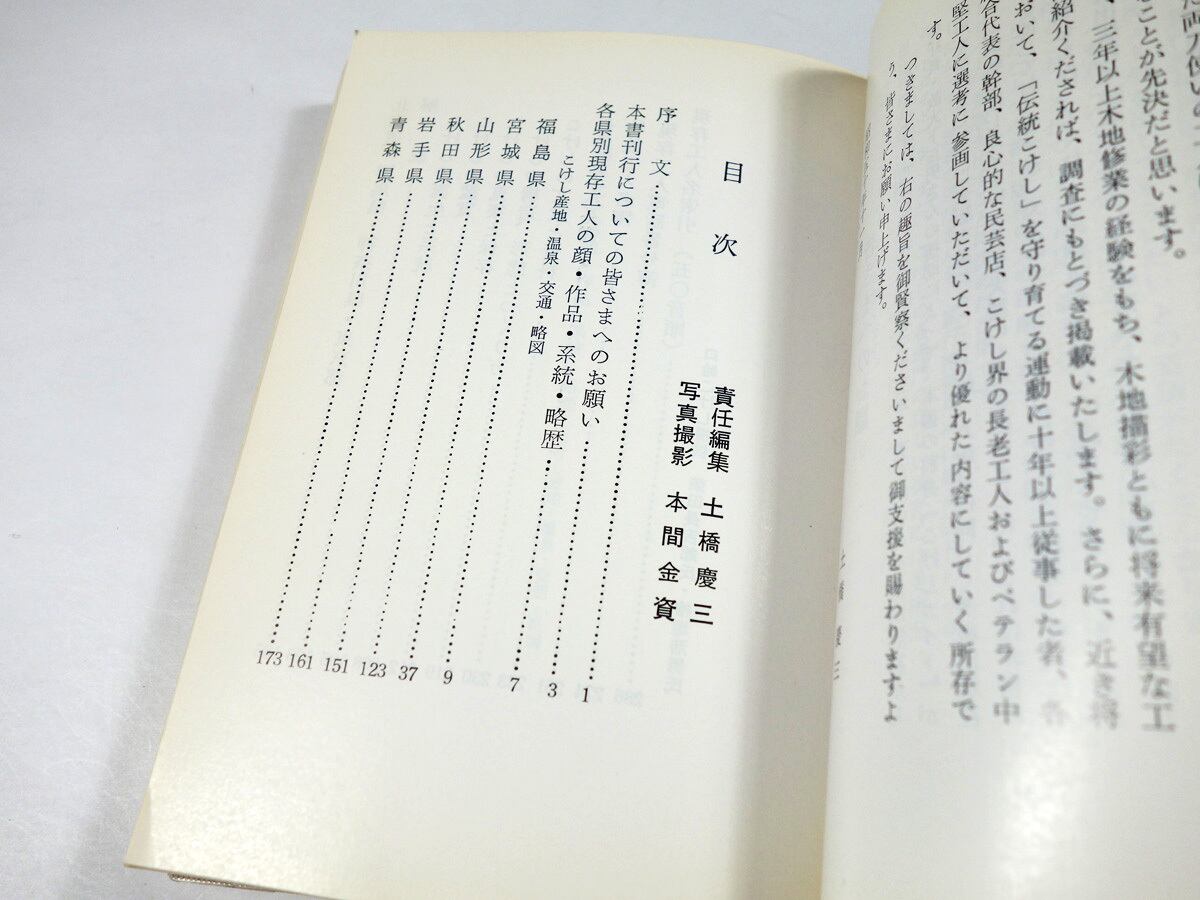 両刀使いの
ことが先決だと思います。
、三年以上木地修業の経験をもち、木地描彩ともに将来有望な工
紹介くだされば、調査にもとづき掲載いたします。さらに、近き将
おいて、「伝統こけし」を守り育てる運動に十年以上従事した者、各
合代表の幹部、良心的な民芸店、こけし界の長老工人およびベテラン中
堅工人に選考に参画していただいて、より優れた内容にしていく所存で
す。
つきましては、右の趣旨を御賢察くださいまして御支援を賜わりますよ
う、皆さまにお願い申上げます。
土橋慶三
目次
責任編集 土橋慶三
写真撮影 本間金資
序文 1
本書刊行についての皆さまへのお願い 3
各県別現存工人の顔・作品・系統・略歴 7
こけし産地・温泉・交通・略図
福島県 9
宮城県 37
山形県 123
秋田県 151
岩手県 161
青森県 173